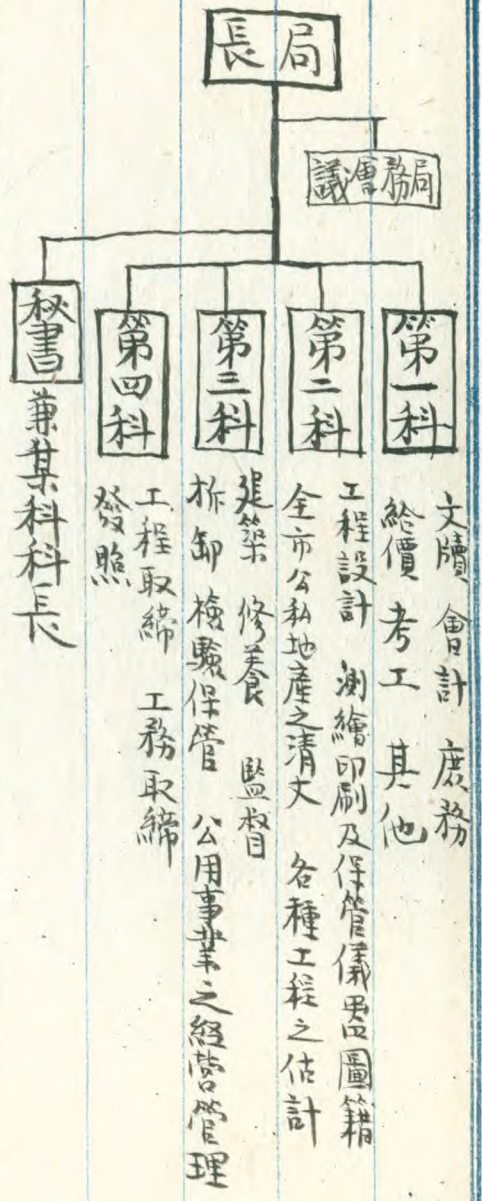 局長
局務會議
第一科
文牘 會計 庶務
給價 考工 其他
第二科
工程設計 測繪印刷及保管儀器圖籍
全市公私地產之清丈 各種工程之估計
第三科
建築 修養 監督
拆卸 檢驗保管 公用事業之經營管理
第四科
工程取締 工務取締
發照
秘書 兼某科科長